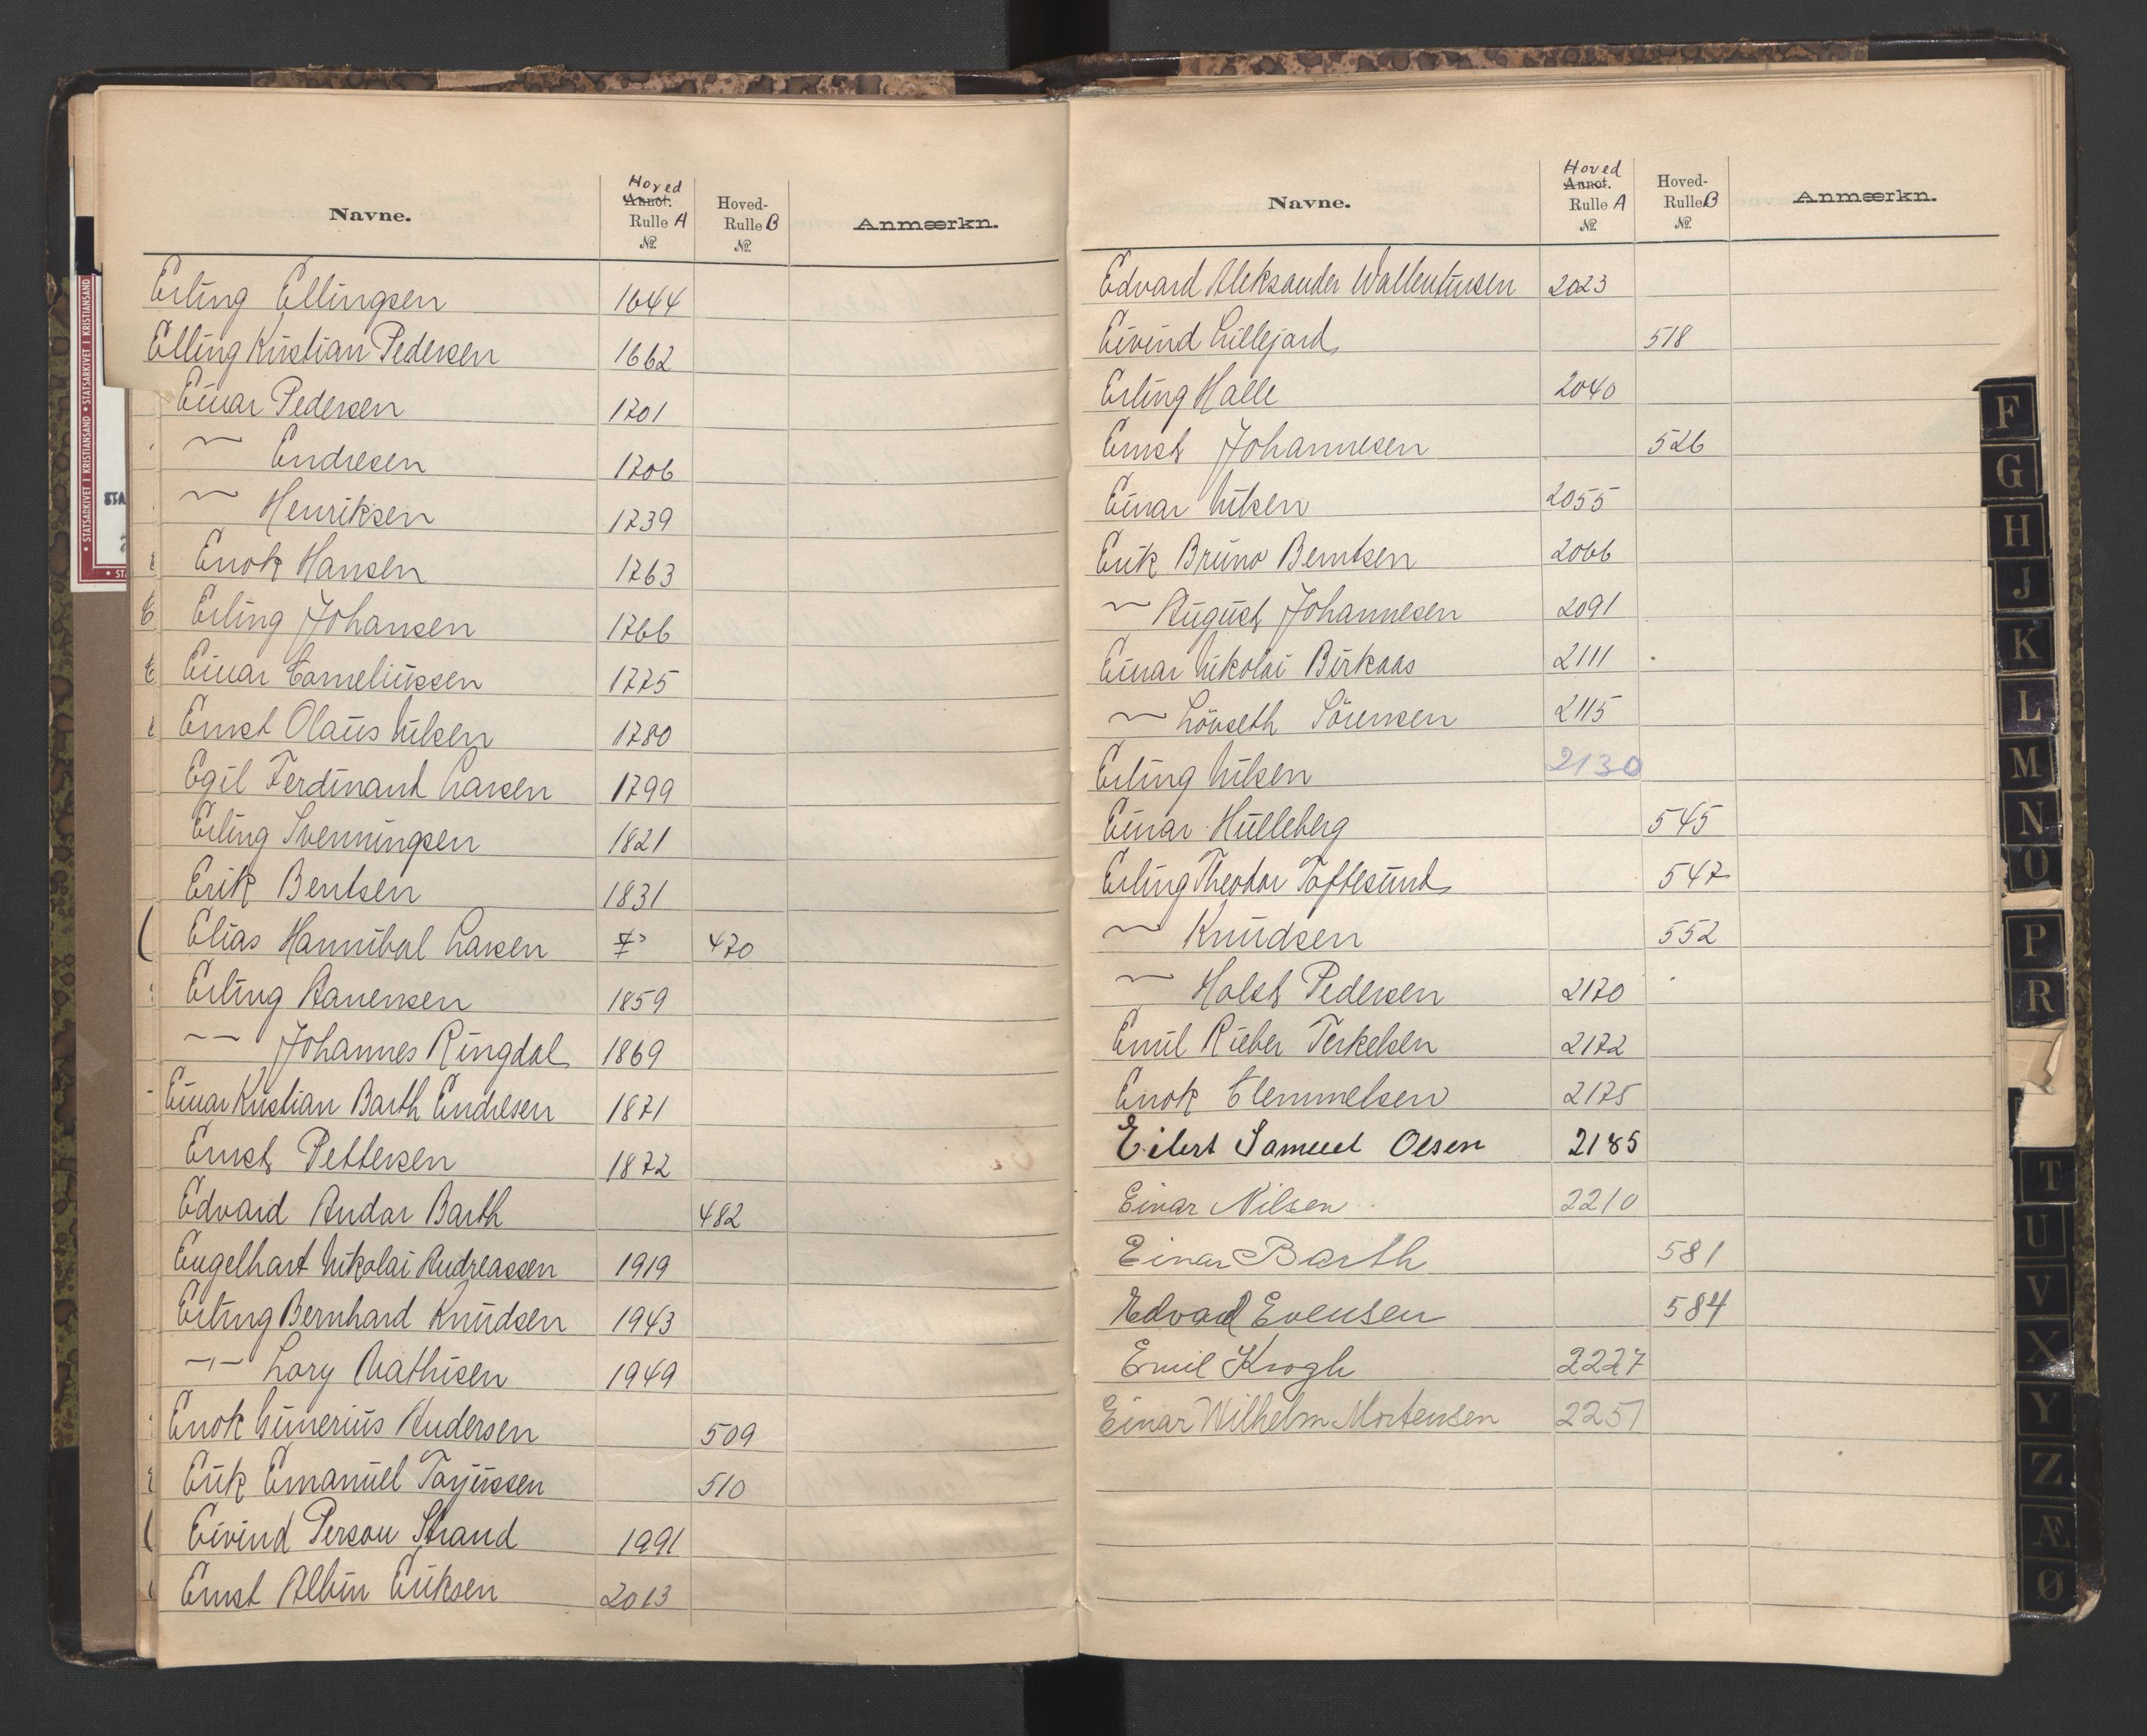 Navne. Hoved Annot. Rulle A № Hoved-Rulle B № Anmærkn.
Erling Ellingsen 1644
Elling Kristian Pedersen 1662
Einar Pedersen 1701
〃 Endresen 1706
〃 Henriksen 1739
Enok Hansen 1763
Erling Johansen 1766
Einar Corneliussen 1775
Ernst Olaus Nilsen 1780
Egil Ferdinand Larsen 1799
Erling Svenningsen 1821
Erik Bentsen 1831
Elias Hannibal Larsen 470
Erling Aanensen 1859
〃 Johannes Ringdal 1869
Einar Kristian Barth Endresen 1871
Ernst Pettersen 1872
Edvard Andor Barth 482
Engelhart Nikolai Andreassen 1919
Erling Bernhard Knudsen 1943
〃 Lory Mathisen 1949
Enok Gunerius Andersen 509
Erik Emanuel Tarjussen 510
Eivind Person Strand 1991
Ernst Albin Eriksen 2013
Navne. Hoved Annot. Rulle A № Hoved-Rulle B № Anmærkn.
Edvard Aleksander Wallentinsen 2023
Eivind Lillejord 518
Erling Halle 2040
Ernst Johannesen 526
Einar Nilsen 2055
Erik Bruno Berntsen 2066
〃 August Johannesen 2091
Einar Nikolai Birkaas 2111
〃 Lövseth Sörensen 2115
Erling Nilsen 2130
Einar Hulleberg 545
Erling Theodor Toftesund 547
〃 Knudsen 552
〃 Holst Pedersen 2170
Emil Rieber Terkelsen 2172
Enok Clemmetsen 2175
Eilert Samuel Olsen 2185
Einar Nilsen 2210
Einar Barth 581
Edvard Evensen 584
Emil Krogh 2227
Einar Wilhelm Mortensen 2251
F
G
H
J
K
L
M
N
O
P
R
T
U
V
X
Y
Z
Æ
Ø
STATSARKIVET I KRISTIANSAND • STATSARKIVET I KRISTIANSAND